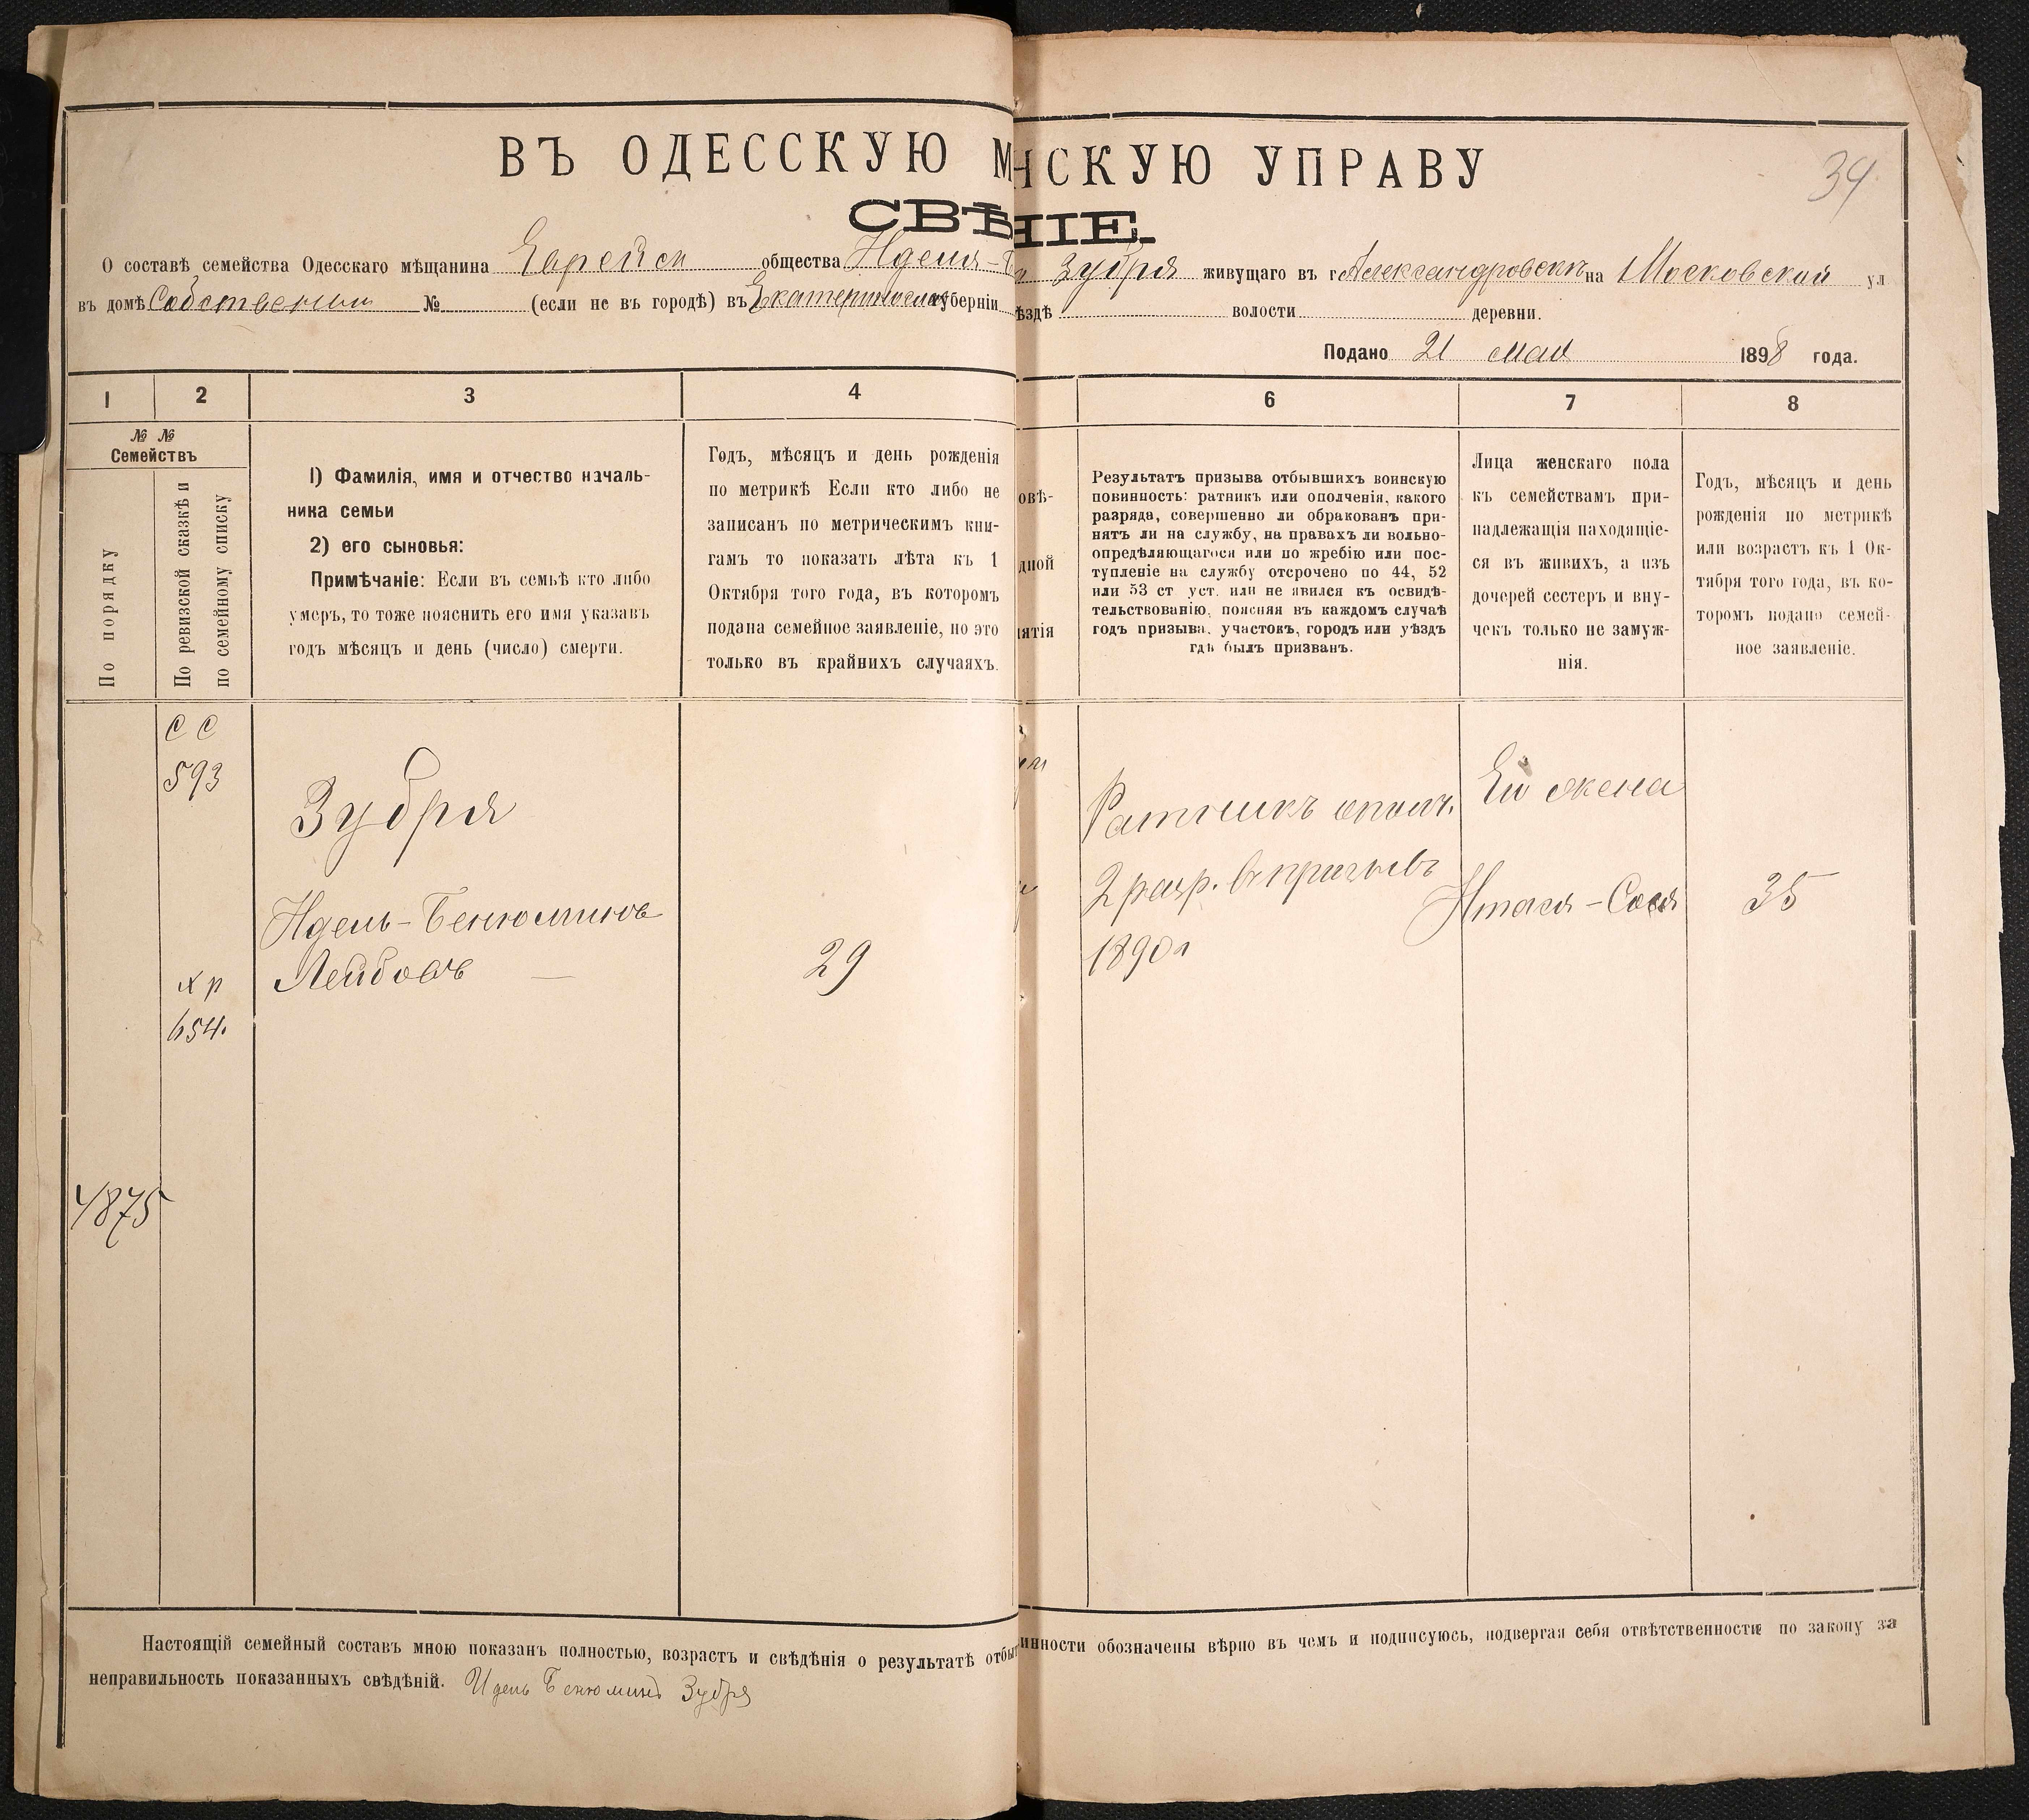 ВЪ ОДЕССКУЮ М НСКУЮ УПРАВУ
34
СВѢ НІЕ.
О составѣ семейства Одесскаго мѣщанина Еврейск общества Иделя-Б Зубря живущаго въ г Александровскѣ на Московской ул
въ домѣ Собственном № (если не въ городѣ) въ Екатериносла губерніи ѣздѣ волости деревни.
Подано 21 мая 1898 года.
1 2 3 4 6 7 8
№ № Семействъ
По порядку
По ревизской сказкѣ и по семейному списку
1) Фамилія, имя и отчество началь-
ника семьи
2) его сыновья:
Примѣчаніе: Если въ семьѣ кто либо
умеръ, то тоже пояснить его имя указавъ
годъ мѣсяцъ и день (число) смерти.
Годъ, мѣсяцъ и день рожденія
по метрикѣ Если кто либо не
записанъ по метрическимъ кни-
гамъ то показать лѣта къ 1
Октября того года, въ которомъ
подана семейное заявленіе, но это
только въ крайнихъ случаяхъ.
овѣ-
дной
нятія
Результатъ призыва отбывшихъ воинскую
повинность: ратникъ или ополченія, какого
разряда, совершенно ли обракованъ при-
нятъ ли на службу, на правахъ ли вольно-
опредѣляющагося или по жребію или пос-
тупленіе на службу отсрочено по 44, 52
или 53 ст уст. или не явился къ освидѣ-
тельствованію, поясняя въ каждомъ случаѣ
годъ призыва, участокъ, городъ или уѣздъ
гдѣ былъ призванъ.
Лица женскаго пола
къ семействамъ при-
надлежащія находящіе-
ся въ живихъ, а изъ
дочерей сестеръ и вну-
чекъ только не замуж-
нія.
Годъ, мѣсяцъ и день
рожденія по метрикѣ
или возрастъ къ 1 Ок-
тября того года, въ ко-
торомъ подано семей-
ное заявленіе.
с с
593
хр
654.
4875
Зубря
Идель-Бенюминов
Лейбовъ —
29
Ратникъ ополч.
2 разр. в призывъ
1890 г
Ей жена
Итася-Сося
35
Настоящій семейный составъ мною показанъ полностью, возрастъ и свѣдѣнія о результатѣ отбы инности обозначены вѣрно въ чемъ и подписуюсь, подвергая себя отвѣтственности по закону за
неправильность показанныхъ свѣдѣній. Идель Бенюминъ Зубря